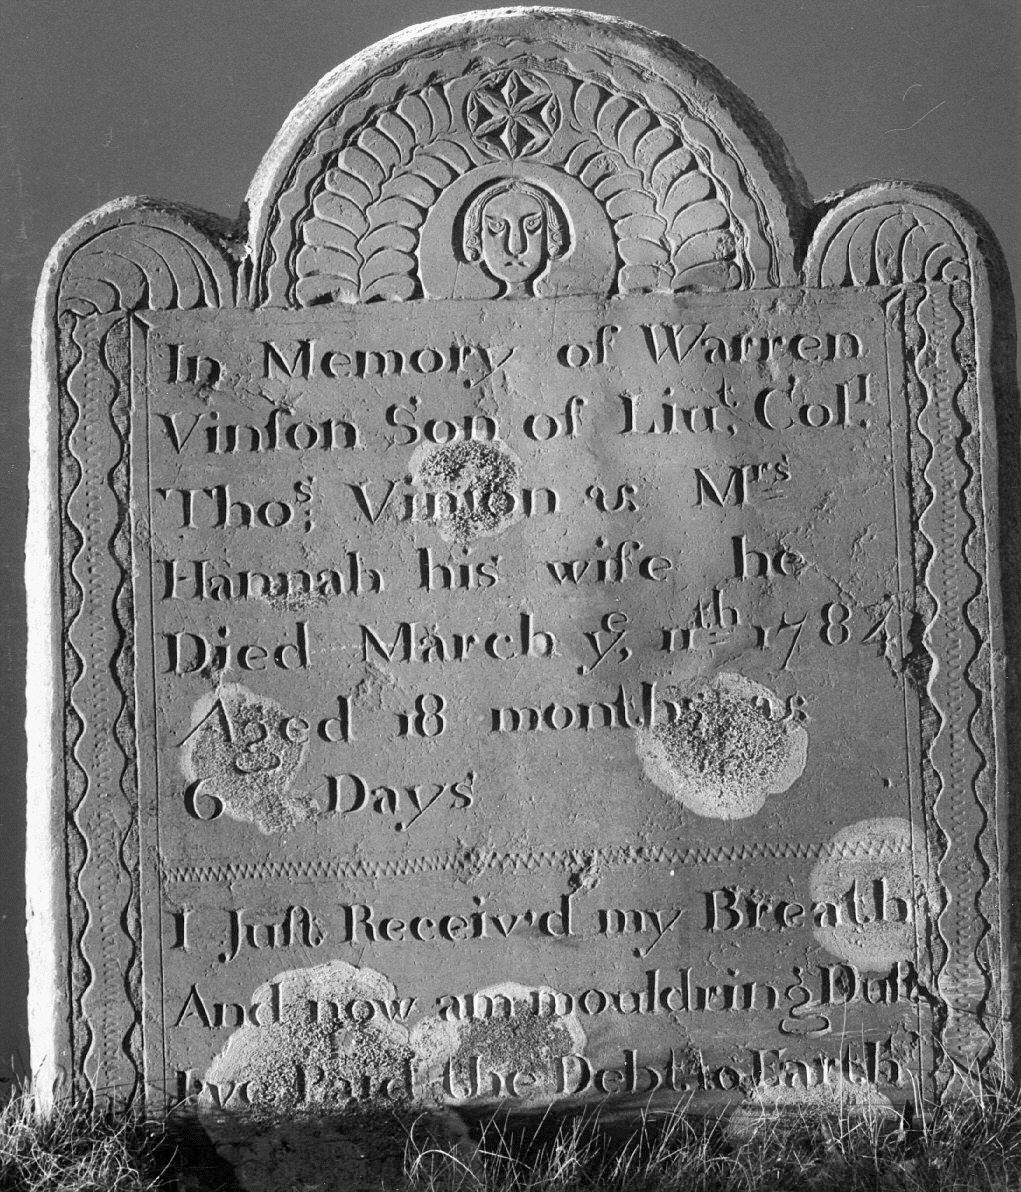 In Memory of Warren
Vinſon Son of Liu.ᵗ Col.ˡ
Tho.ˢ Vinſon & Mʳˢ
Hannah his wife he
Died March yᵉ, 11ᵗʰ 1784
Aged 18 months &
6 Days
I Juſt Receiv'd my Breath
And now am mouldring Duſt
I've Paid the Debt to Earth